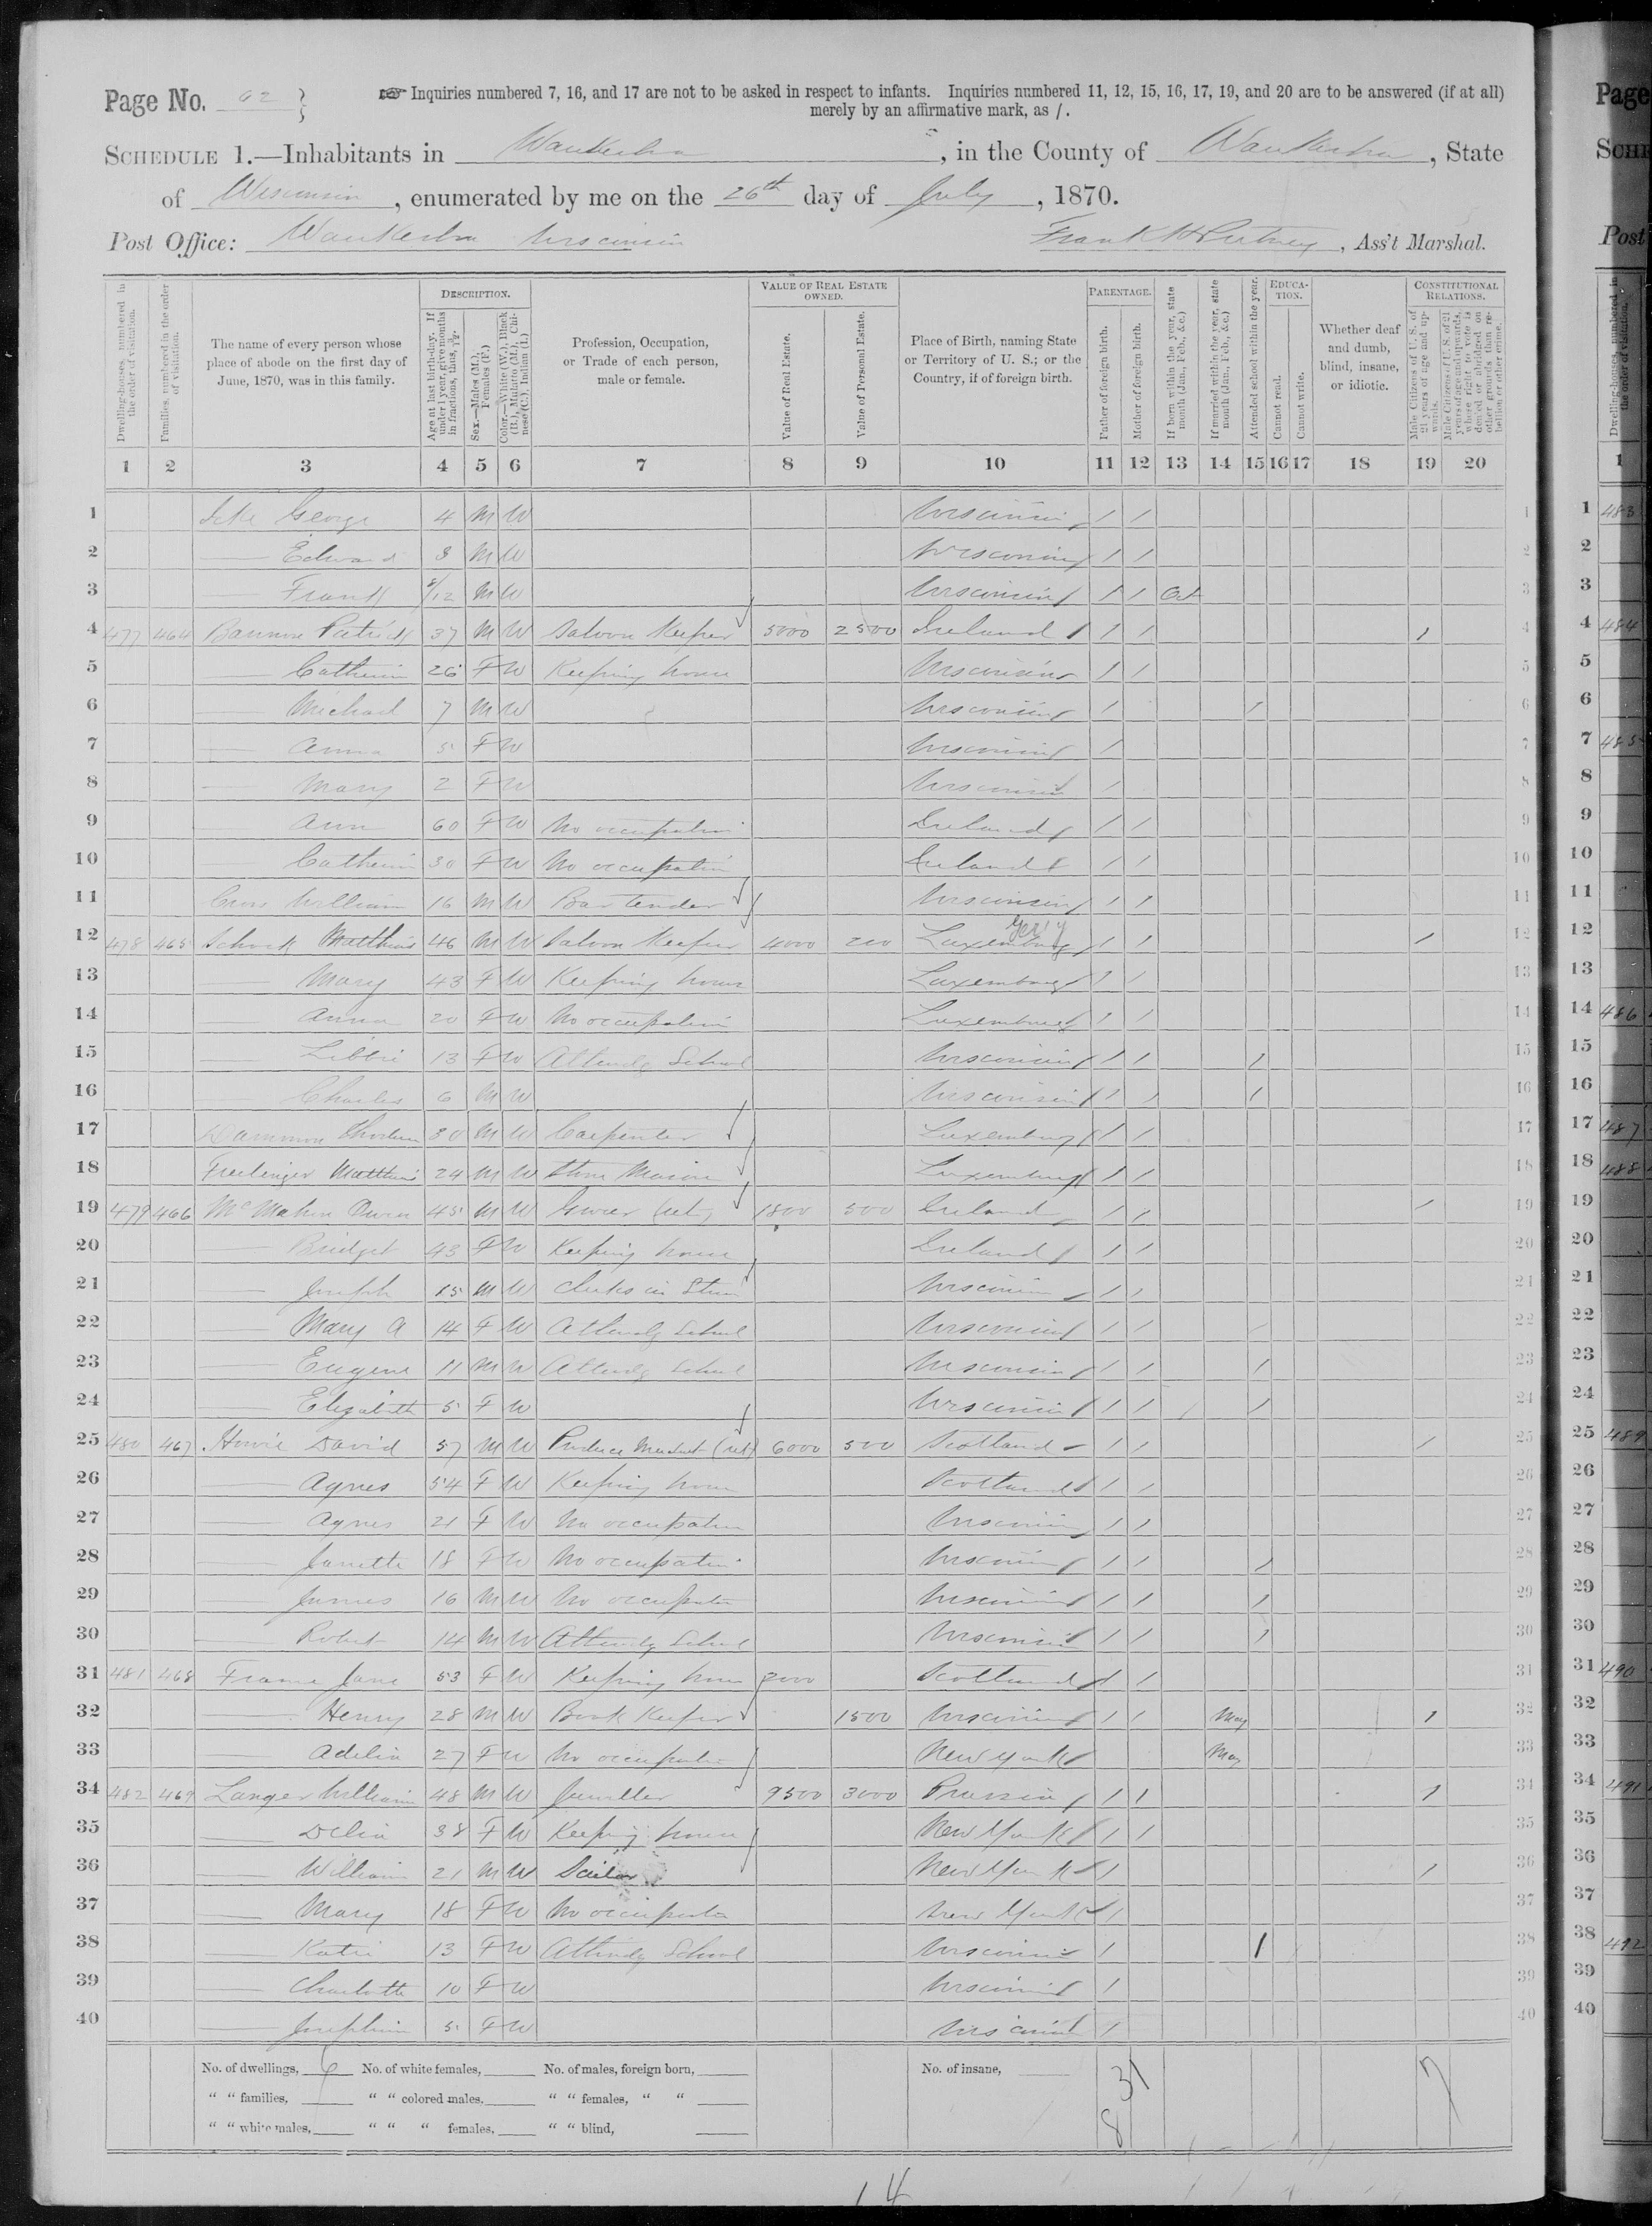 Page No. 62
☞ Inquiries numbered 7, 16, and 17 are not to be asked in respect to infants. Inquiries numbered 11, 12, 15, 16, 17, 19, and 20 are to be answered (if at all)
merely by an affirmative mark, as /.
SCHEDULE 1.—Inhabitants in Waukesha, in the County of Waukesha, State
of Wisconsin, enumerated by me on the 26th day of July, 1870.
Post Office: Waukesha Wisconsin Frank H Putney, Ass't Marshal.
Dwelling-houses, numbered in the order of visitation.
Families, numbered in the order of visitation.
The name of every person whose place of abode on the first day of June, 1870, was in this family.
DESCRIPTION.
Age at last birth-day. If under 1 year, give months in fractions, thus, 3/12.
Sex.—Males (M.), Females (F.)
Color.—White (W.), Black (B.), Mulatto (M.), Chinese (C.), Indian (I.)
Profession, Occupation, or Trade of each person, male or female.
VALUE OF REAL ESTATE OWNED.
Value of Real Estate.
Value of Personal Estate.
Place of Birth, naming State or Territory of U. S.; or the Country, if of foreign birth.
PARENTAGE.
Father of foreign birth.
Mother of foreign birth.
If born within the year, state month (Jan., Feb., &c.)
If married within the year, state month (Jan., Feb., &c.)
Attended school within the year.
EDUCATION.
Cannot read.
Cannot write.
Whether deaf and dumb, blind, insane, or idiotic.
CONSTITUTIONAL RELATIONS.
Male Citizens of U. S. of 21 years of age and upwards.
Male Citizens of U. S. of 21 years of age and upwards, whose right to vote is denied or abridged on other grounds than rebellion or other crime.
1 2 3 4 5 6 7 8 9 10 11 12 13 14 15 16 17 18 19 20
1 George 4 M W Wisconsin / / 1
2 — Edward 3 M W Wisconsin / / 2
3 — Frank 8/12 M W Wisconsin / / Oct 3
4 477 464 Bannon Patrick 37 M W Saloon Keeper 5000 2500 Ireland / / / 4
5 — Catherin 26 F W Keeping house Wisconsin / / 5
6 — Michael 7 M W Wisconsin / / 6
7 — Anna 5 F W Wisconsin / 7
8 — Mary 2 F W Wisconsin / 8
9 — Ann 60 F W No occupation Ireland / / 9
10 — Catherin 30 F W No occupation Ireland / / 10
11 William 16 M W Bar tender Wisconsin / / 11
12 478 465 Schock Matthias 46 M W Saloon Keeper 4000 200 Luxemburg / / / 12
13 — Mary 43 F W Keeping house Luxemburg / / 13
14 — Anna 20 F W No occupation Luxemburg / / 14
15 — Libbie 13 F W Attendg School Wisconsin / / / 15
16 — Charles 6 M W Wisconsin / / / 16
17 30 M W Carpenter Luxemburg / / 17
18 Matthias 24 M W Stone Mason Luxemburg / / 18
19 479 466 McMahon Owen 45 M W Grocer (ret) 1800 500 Ireland / / / 19
20 — Bridget 43 F W Keeping house Ireland / / 20
21 — Joseph 15 M W Clerks in Store Wisconsin / / 21
22 — Mary A 14 F W Attendg School Wisconsin / / / 22
23 — Eugene 11 M W Attendg School Wisconsin / / / 23
24 — Elizabeth 5 F W Wisconsin / / / 24
25 480 467 Howie David 57 M W Produce Merchant (ret) 6000 500 Scotland / / / 25
26 — Agnes 54 F W Keeping house Scotland / / 26
27 — Agnes 21 F W No occupation Wisconsin / / 27
28 — Janette 18 F W No occupation Wisconsin / / / 28
29 — James 16 M W No occupation Wisconsin / / / 29
30 — Robert 14 M W Attendg School Wisconsin / / / 30
31 481 468 Frame Jane 53 F W Keeping house 2000 Scotland / / 31
32 — Henry 28 M W Book Keeper 1500 Wisconsin / / May / 32
33 — Adelia 27 F W No occupation New York May 33
34 482 469 Langer William 48 M W Jeweller 9500 3000 Prussia / / / 34
35 — Delia 38 F W Keeping house New York / / 35
36 — William 21 M W New York / / 36
37 — Mary 18 F W No occupation New York / 37
38 — Katie 13 F W Attendg School Wisconsin / / 38
39 — Charlotte 10 F W Wisconsin / 39
40 — Josephine 5 F W Wisconsin / 40
No. of dwellings, 6 No. of white females, No. of males, foreign born, No. of insane, 31 7
" " families, " " colored males, " " females, " "
" " white males, " " " females, " " blind, 8
14
Page
SCHE
Post
Dwelling-houses, numbered in the order of visitation.
1
1 483
2
3
4 484
5
6
7 485
8
9
10
11
12
13
14 486
15
16
17 487
18 488
19
20
21
22
23
24
25 489
26
27
28
29
30
31 490
32
33
34 491
35
36
37
38 492
39
40